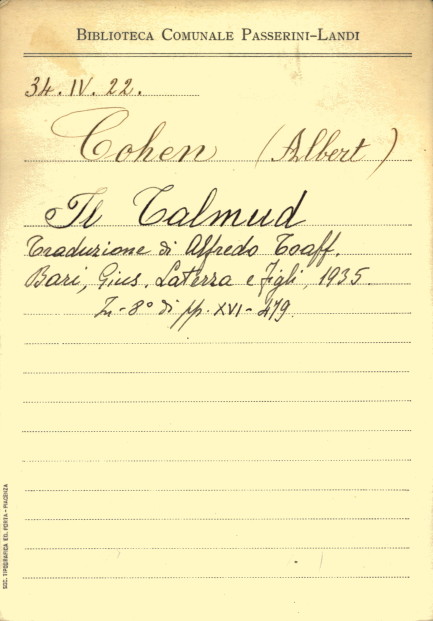 BIBLIOTECA COMUNALE PASSERINI-LANDI
34. IV. 22.
Cohen (Albert)
Il Talmud
Traduzione di Alfredo Toaff.
Bari, Gius. Laterza e Figli, 1935.
In-8° di pp. XVI-479
SOC. TIPOGRAFICA ED. PORTA - PIACENZA